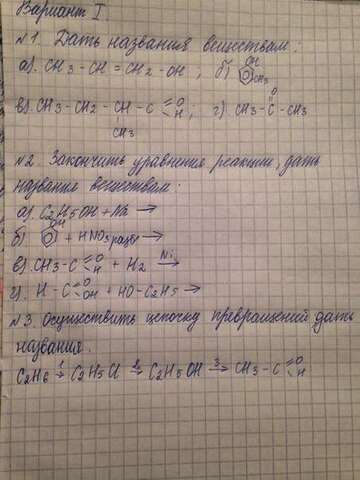 Вариант I
№1. Дать названия веществам:
а). CH3-CH=CH2-OH; б) OH CH3
в). CH3-CH2-CH-C=O H; г). CH3-C-CH3 O
CH3
№2 Закончить уравнения реакции, дать
названия веществам:
а) C2H5OH+Na→
б) OH + HNO3 разб→
в) CH3-C=O H + H2 Ni→
г). H-C=O OH + HO-C2H5→
№3. Осуществить цепочку превращений дать
названия.
C2H6 1→ C2H5Cl 2→ C2H5OH 3→ CH3-C=O H